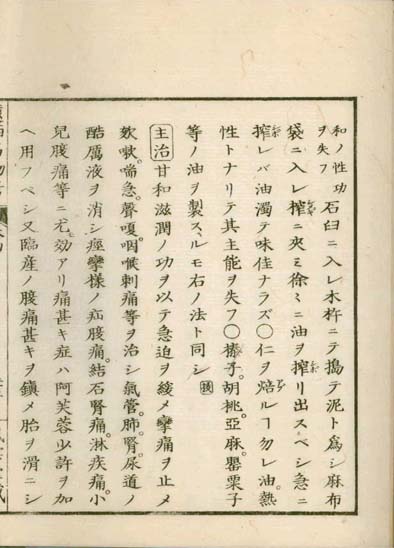 和ノ性功
ヲ失フ
石臼ニ入レ木杵ニテ搗テ泥ト爲シ麻布
袋ニ入レ搾ニ夾ミ徐ミニ油ヲ搾リ出スベシ急ニ
搾レバ油濁テ味佳ナラズ〇仁ヲ焙ルヿ勿レ油熱
性トナリテ其主能ヲ失フ〇榛子。胡桃。亞麻。罌粟子
等ノ油ヲ製スルモ右ノ法ト同シ
主治 甘和滋潤ノ功ヲ以テ急迫ヲ緩メ攣痛ヲ止メ
欬嗽。喘急。聲嗄。咽喉刺痛等ヲ治シ氣管。肺。腎。尿道ノ
酷厲液ヲ消シ痙攣樣ノ疝腹痛。結石腎痛。淋疾痛。小
兒腹痛等ニ尤モ效アリ痛甚キ症ハ阿芙蓉少許ヲ加
ヘ用フベシ又臨産ノ腹痛甚キヲ鎮メ胎ヲ滑ニシ